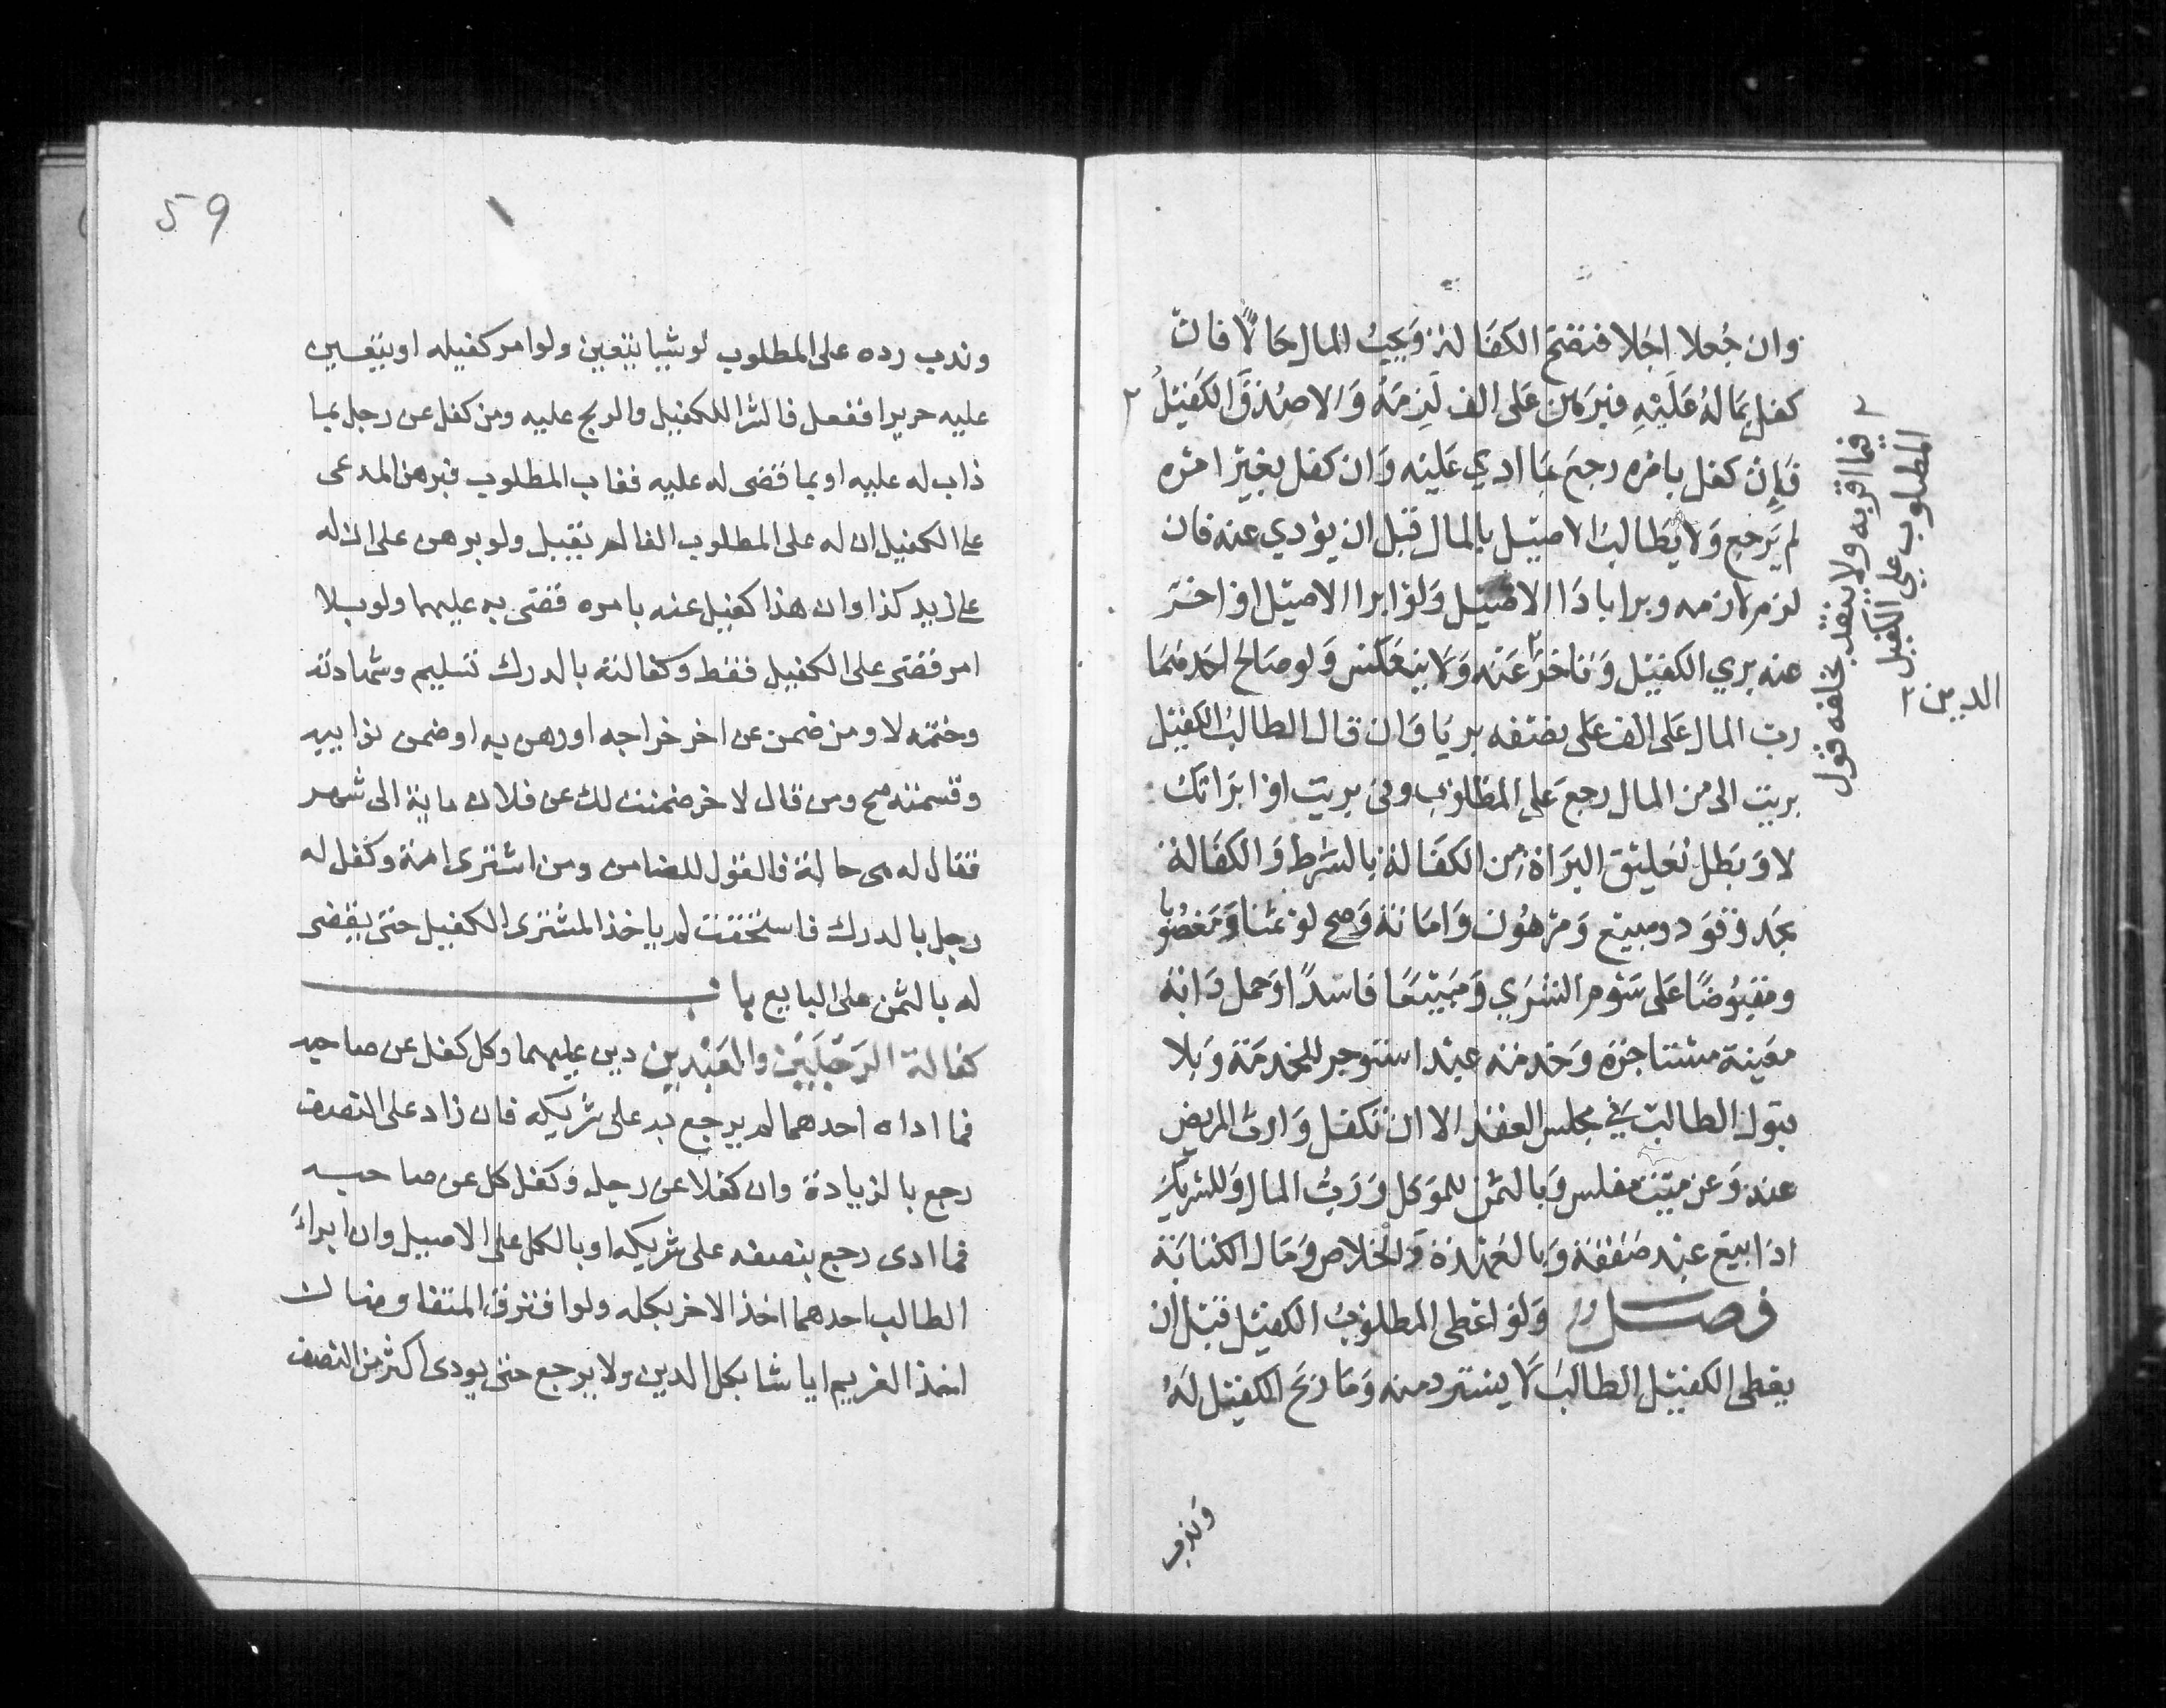 وان جعلا اجلا فتصح الكفالة ويجب المال حالا فان
كفل بماله عليه فبرهن على الف لزمه والا صدق الكفيل ٢
فان كفل بامره رجع بما ادي عليه وان كفل بغير امره
لم يرجع ولا يطالب الاصيل بالمال قبل ان يؤدي عنه فان
لوزم لازمه وبرا باداا الاصيل ولو ابرا الاصيل او اخر
عنه بري الكفيل وتاخر عنه ولا ينعكس ولو صالح احدهما
رب المال على الف على نصفه بريا وان قال الطالب للكفيل
بريت الى من المال رجع على المطلوب وفى بريت او ابراتك
لا وبطل تعليق البراة من الكفالة بالشرط والكفالة
بحد وقود ومبيع ومرهون وامانة وصح لو ثمنا ومغصوبا
ومقبوضا على سوم الشري ومبيعا فاسدا وحمل دابة
معينة مستاجرة وخدمة عبد استوجر للخدمة وبلا
قبول الطالب في مجلس العقد الا ان تكفل وارث المريض
عنه وعن ميت مفلس وبالثمن للموكل ورب المال وللشريك
اذا بيع عبد صفقة وبالعهدة والخلاص ومال الكتابة
فصل ولو اعطى المطلوب الكفيل قبل ان
يعطى الكفيل الطالب لا يسترد منه وما ربح الكفيل له
وندب
٢ فيما اقر به ولا ينفذ بحلفه قول
المطلوب علي الكفيل
الدين ٢
59
وندب رده على المطلوب لو شيا يتعين ولو امر كفيله ان يتعين
عليه حريرا ففعل فالشرا للكفيل والربح عليه ومن كفل عن رجل بما
ذاب له عليه او بما قضى له عليه فغاب المطلوب فبرهن المدعى
على الكفيل ان له على المطلوب الفا لم تقبل ولو برهن على ان له
على زيد كذا وان هذا كفيل عنه بامره قضى به عليهما ولو بلا
امر قضى على الكفيل فقط وكفالته بالدرك تسليم وشهادته
وختمه لا ومن ضمن عن اخر خراجه او رهن به او ضمن نوايبه
وقسمته صح ومن قال لاخر ضمنت لك عن فلان ماية الى شهر
فقال له هى حالة فالقول للضامن ومن اشترى امة وكفل له
رجل بالدرك فاستحقت لم ياخذ المشترى الكفيل حتى يقضى
له بالثمن على البايع باب
كفالة الرجلين والعبدين دين عليهما وكل كفل عن صاحبه
فما اداه احدهما لم يرجع به على شريكه فان زاد على النصف
رجع بالزيادة وان كفلا عن رجل وكفل كل عن صاحبه
فما ادى رجع بنصفه على شريكه او بالكل على الاصيل وان ابراء
الطالب احدهما اخذ الاخر بكله ولو افترق المتفاوضان
اخذ الغريم ايا شا بكل الدين ولا يرجع حتى يودى اكثر من النصف